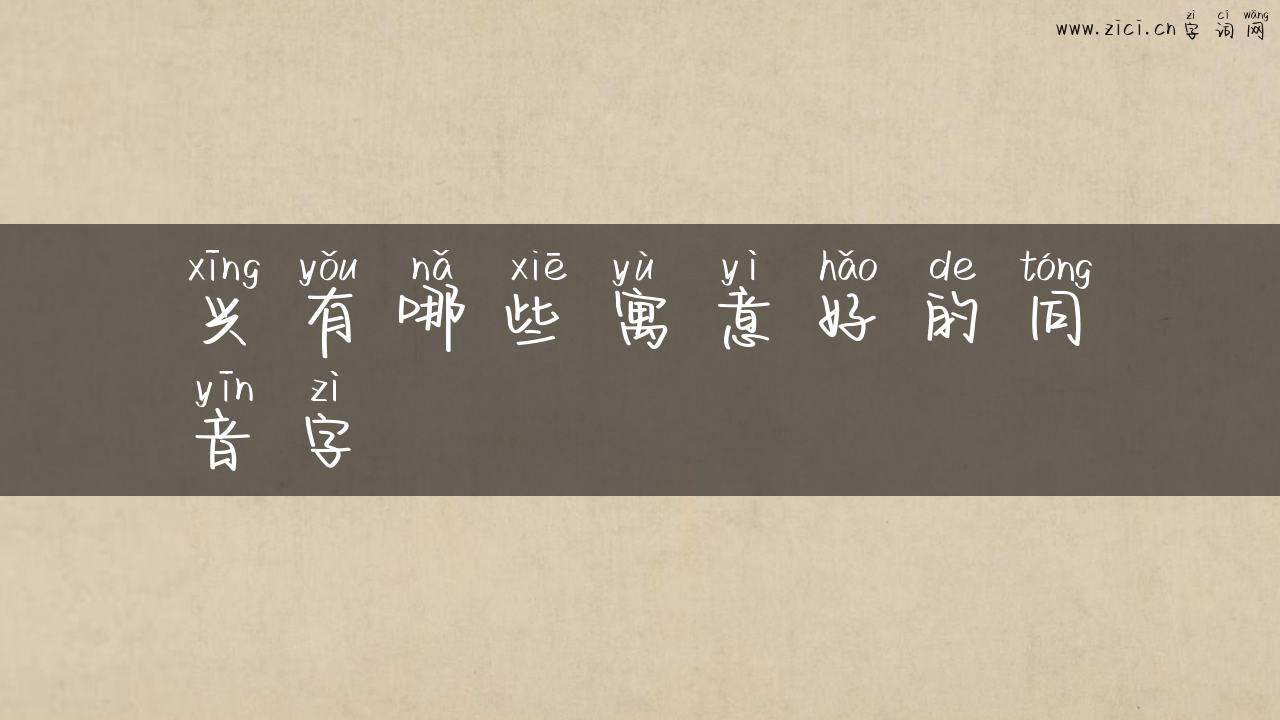 zì cí wǎng
www.zici.cn 字词网
xīng yǒu nǎ xiē yù yì hǎo de tóng
兴有哪些寓意好的同
yīn zì
音字